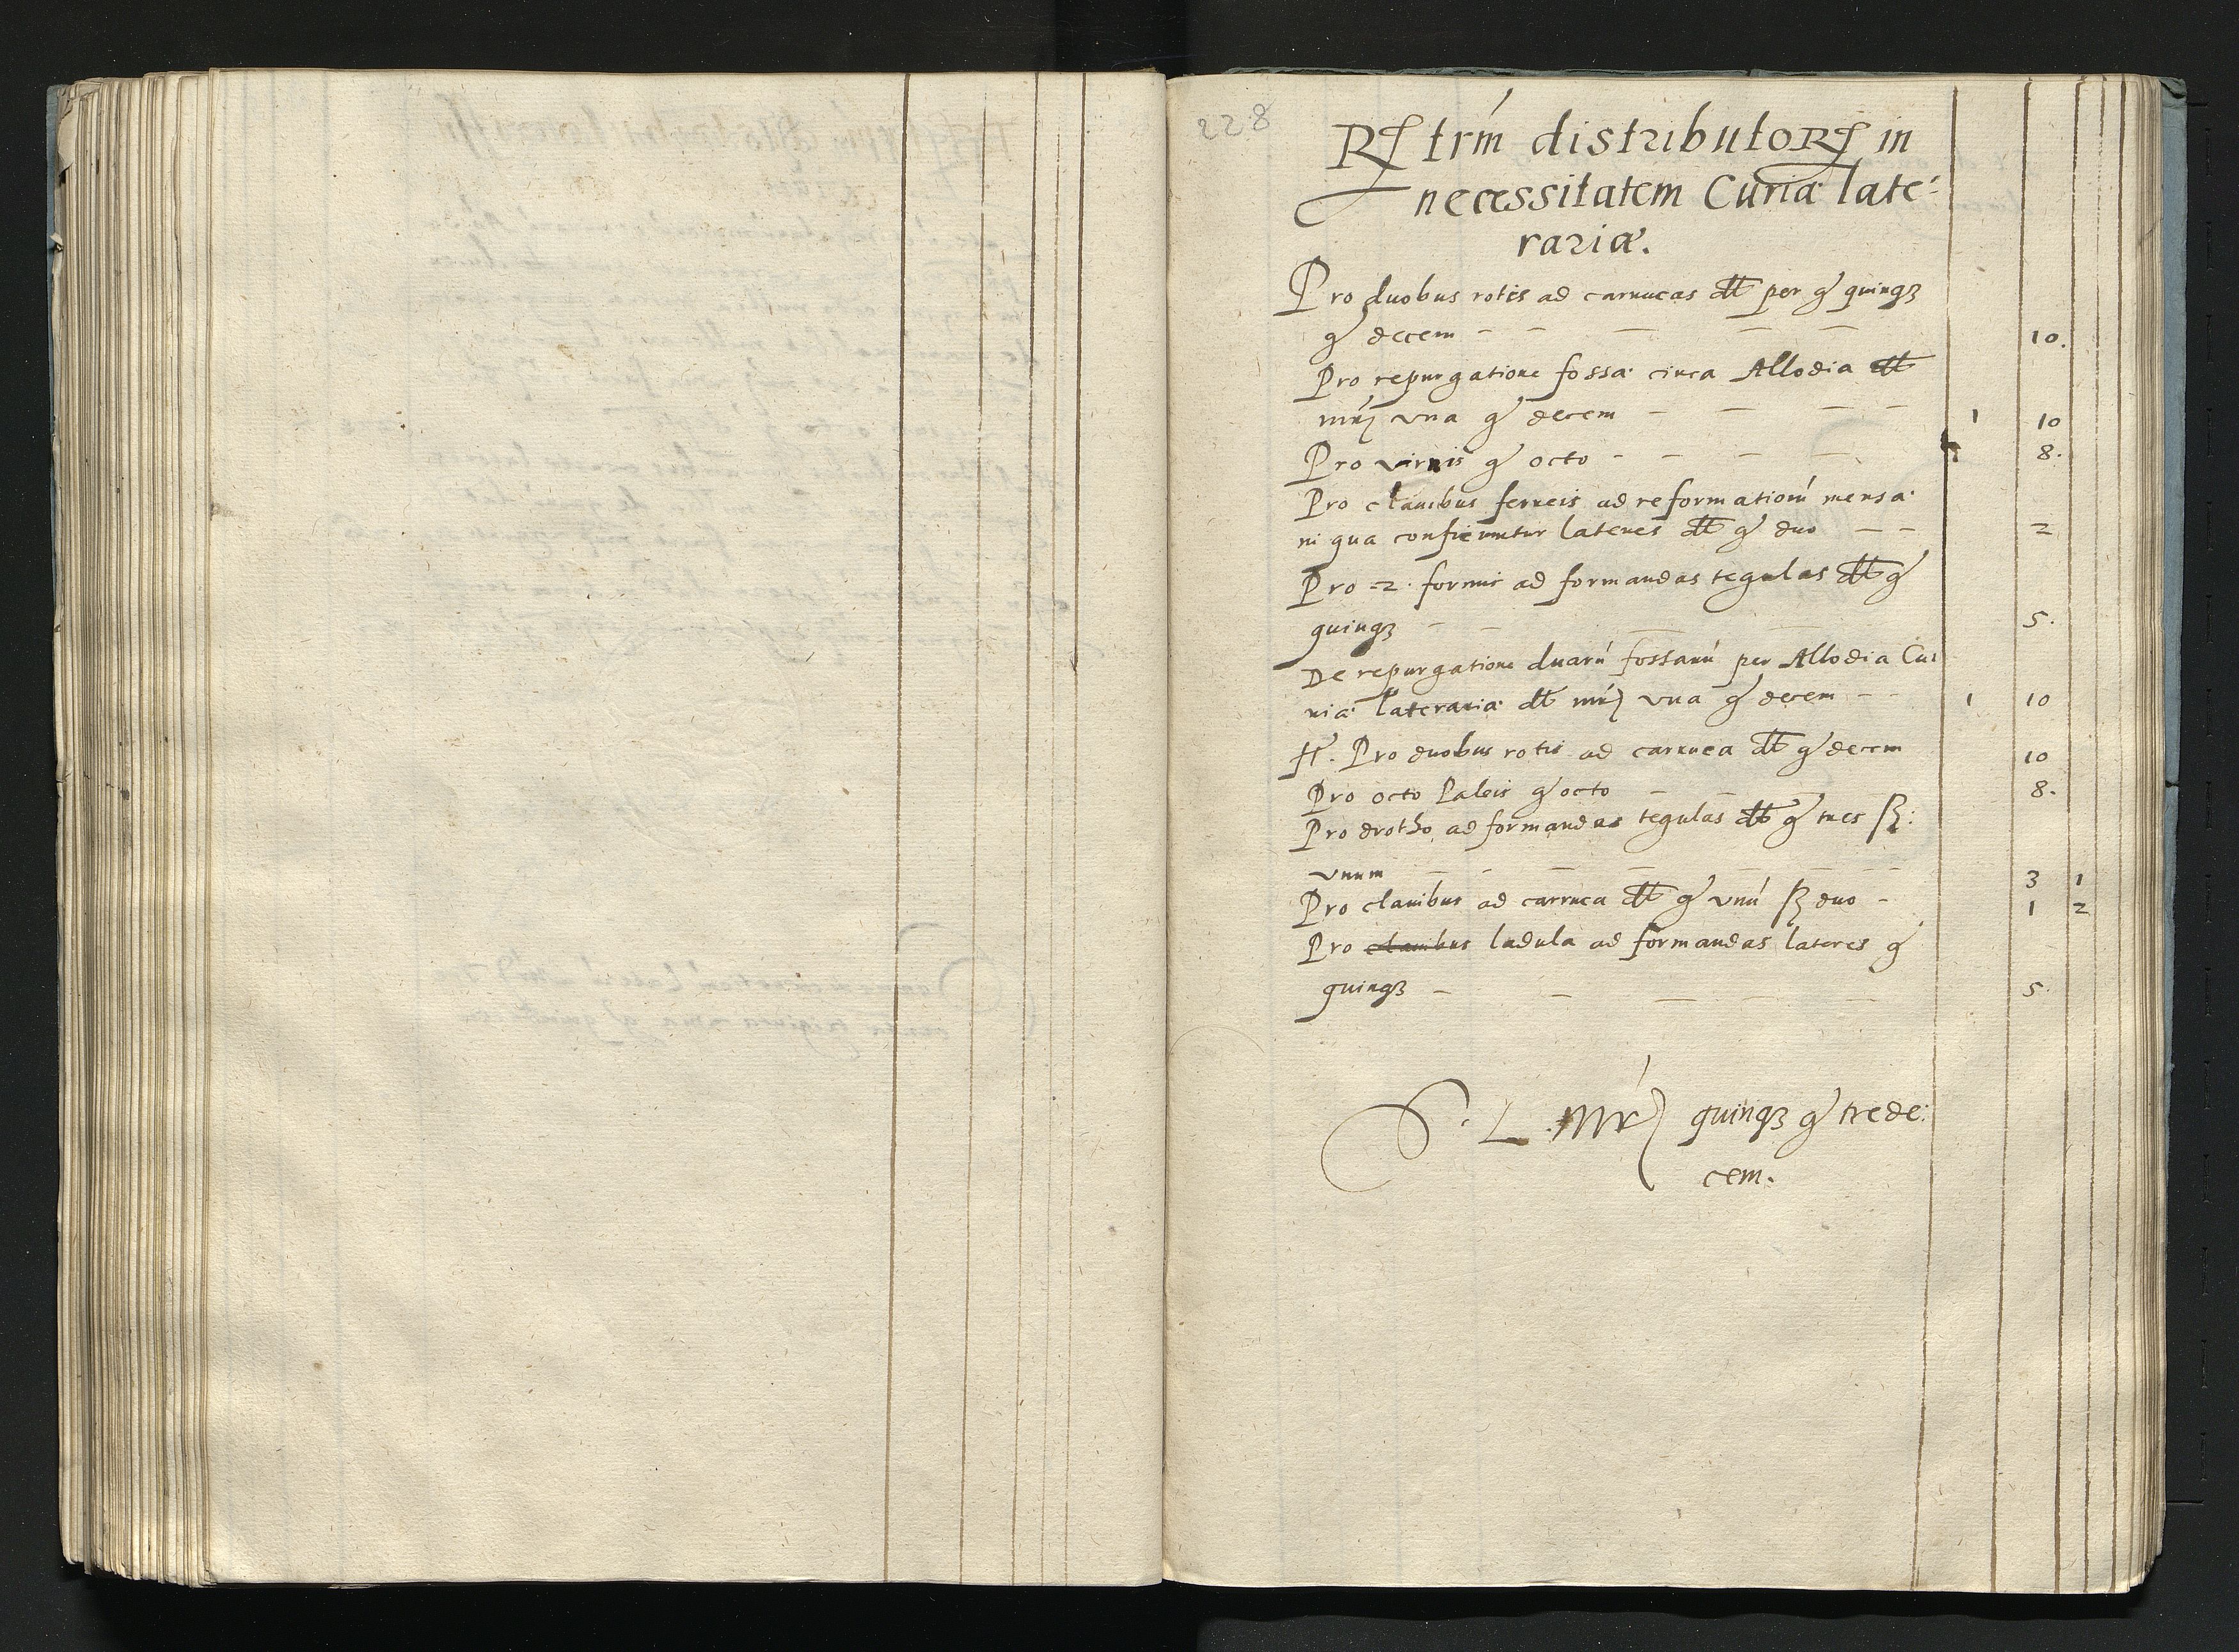 228
Rſtrḿ distributoRſ in
necessitatem Curiæ late⸗
rariæ.
Pro duobus rotis ad carrucas dt per gr quinqꝫ
gr decem — — — — — 10.
Pro repurgatione fossæ circa Allodia dt
mrꝭ vna gr decem — — — — 1 10
Pro virnis gr octo — — — — 8.
Pro clauibus ferreis ad reformationḿ mensæ
in qua conficiuntur lateres dt gr duo — — 2
Pro 2. formis ad formandas tegulas dt gr
quinqꝫ — — — 5.
De repurgatione duarú fossarú per Allodia Cu⸗
riæ laterariæ dt mrꝭ vna gr decem — — 1 10
It. Pro duobus rotis ad carruca dt gr decem 10
Pro octo Paleis gr octo — — — 8.
Pro drotho ad formandas tegulas dt gr tres ꝭ:
vnum — — — — — — — 3 1
Pro clauibus ad carruca dt gr vnú ꝭ duo — 1 2
Pro clauibus ladula ad formandas lateres gr
quinqꝫ — — — — — 5.
S. L. Mrꝭ quinqꝫ gr trede:
cem.